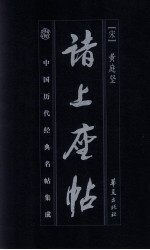 [宋] 黄庭坚
诸上座帖
中国历代经典名帖集成
华夏出版社